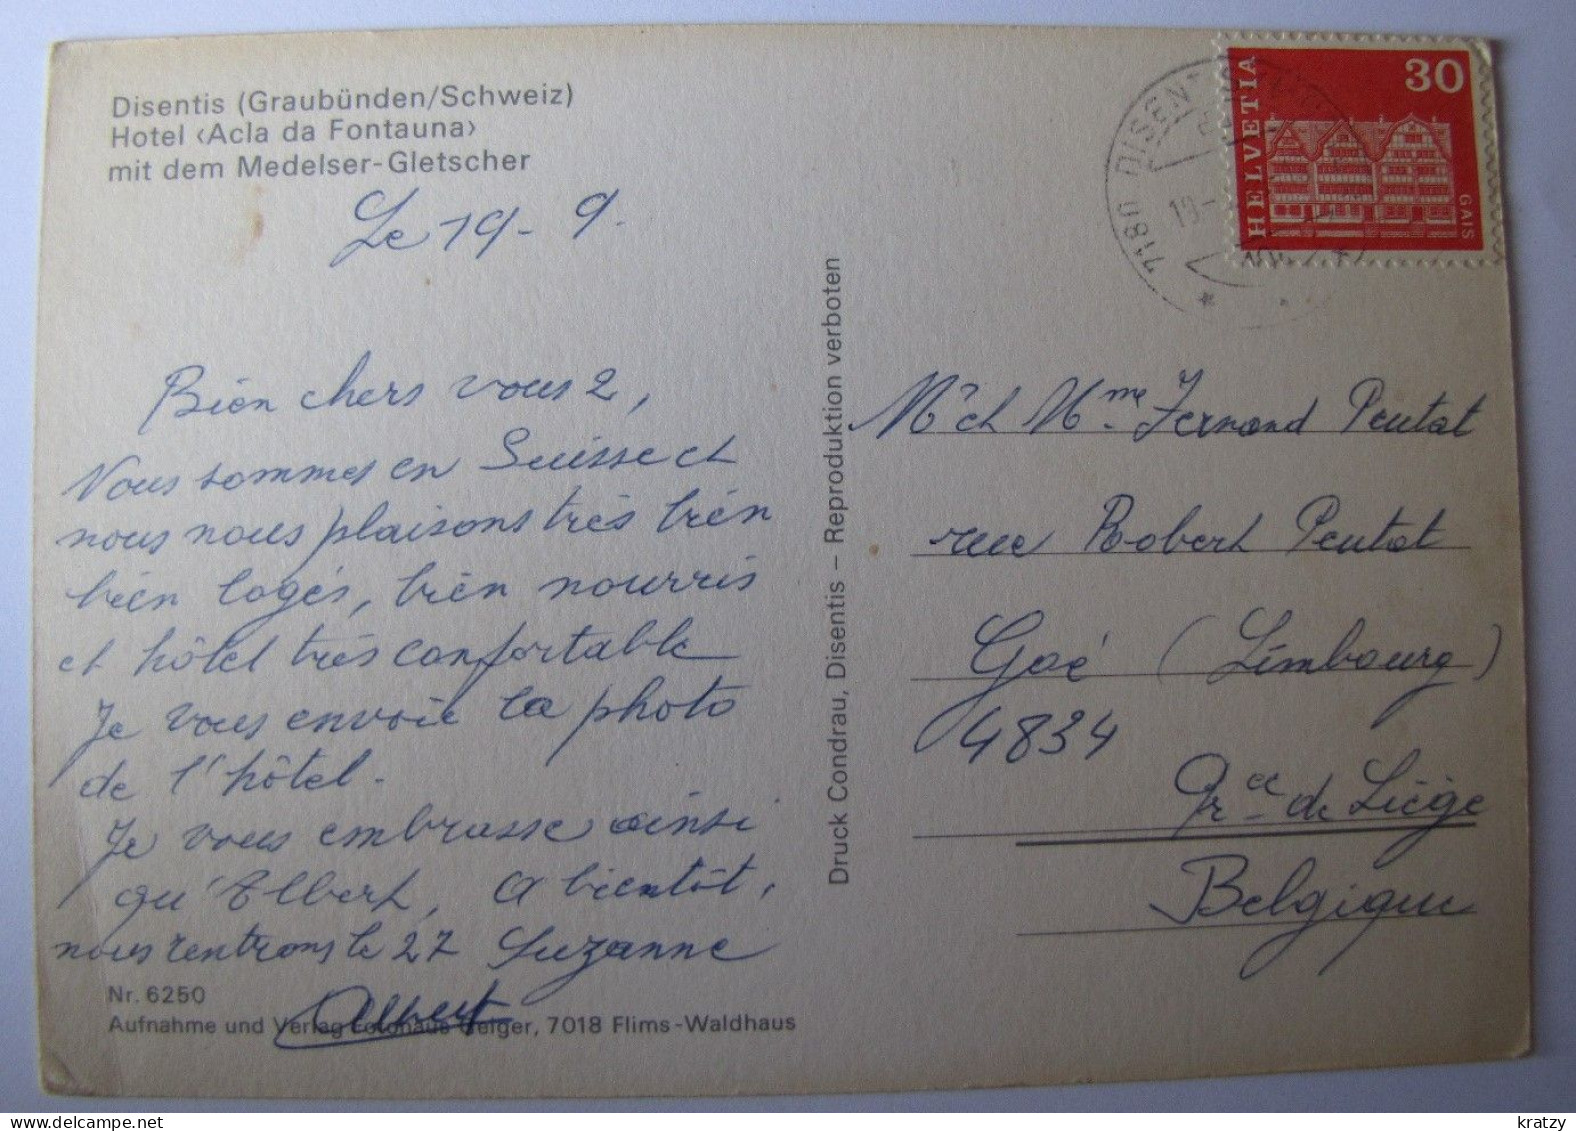 Disentis (Graubünden/Schweiz)
Hotel ‹Acla da Fontauna›
mit dem Medelser-Gletscher
Le 19-9.
Bien chers vous 2,
Nous sommes en Suisse et
nous nous plaisons très bien
bien logés, bien nourris
et hôtel très confortable
Je vous envoie la photo
de l'hôtel.
Je vous embrasse ainsi
qu'Albert, A bientôt,
nous rentrons le 27 Suzanne
Albert
Nr. 6250
Aufnahme und Verlag Fotohaus Geiger, 7018 Flims-Waldhaus
Druck Condrau, Disentis – Reproduktion verboten
HELVETIA
30
GAIS
7180 DISENTIS
19-
Mr et Mme Fernand Peutat
rue Robert Peutat
Goé (Limbourg)
4834
Prce de Liège
Belgique
kratzy